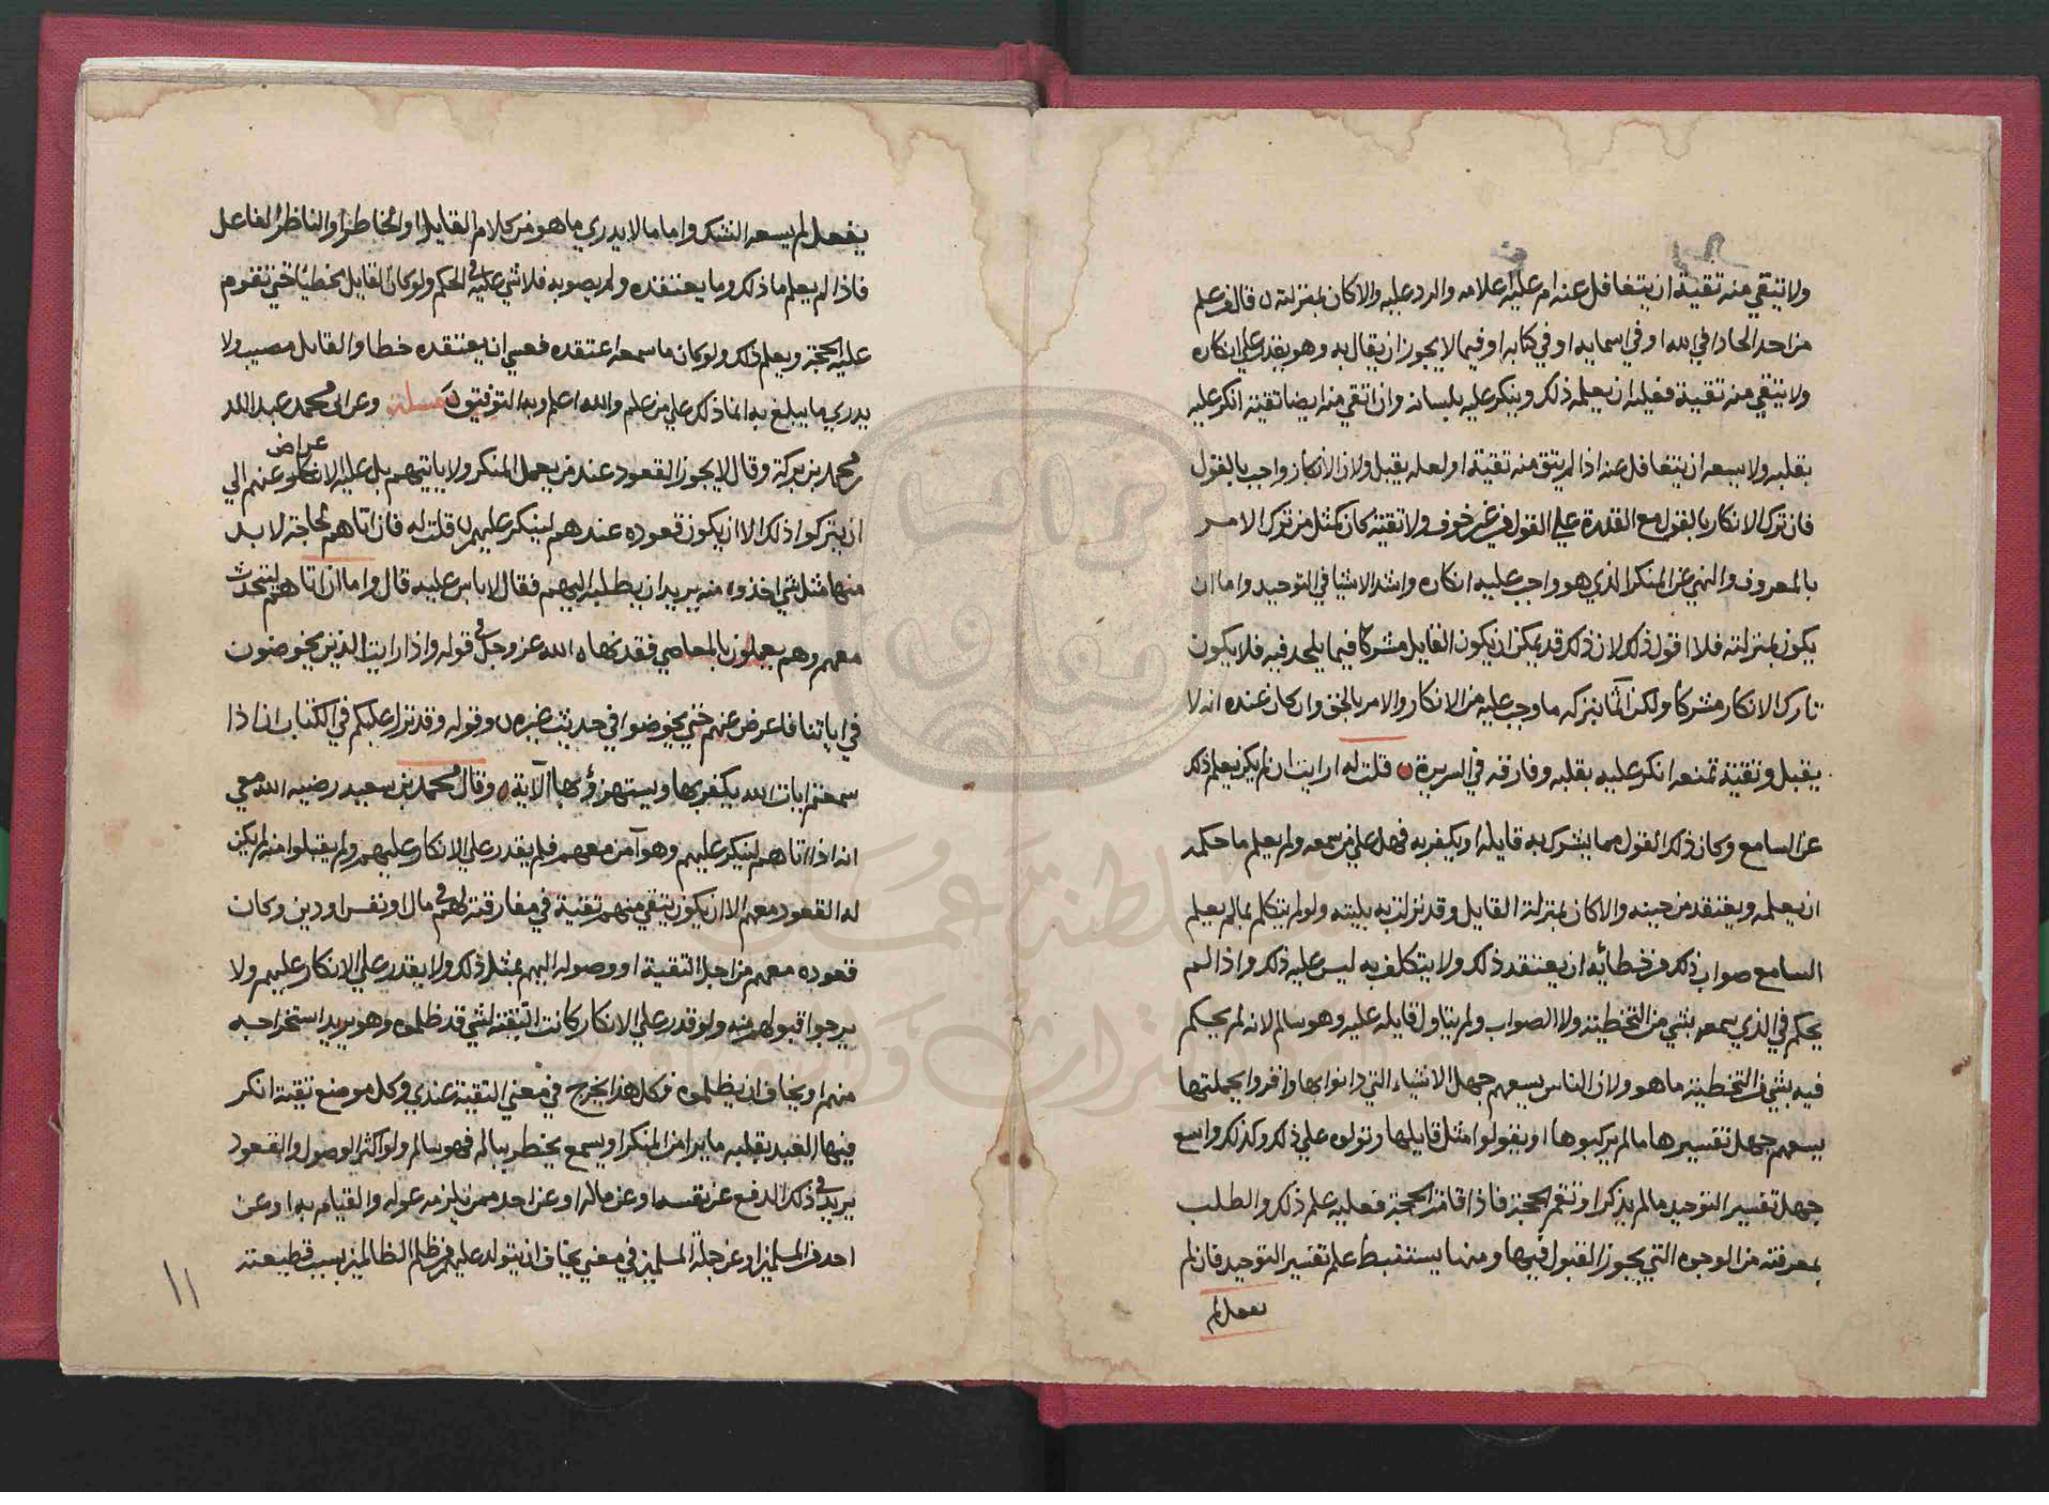 ولا تتقي منه تقية ان يتغافل عنه ام عليه اعلامه والرد عليه والا كان بمنزلته ن قال فمن علم
من احد الحادا في الله او في اسمايه او في كتابه او فيما لا يجوز ان يقال به وهو يقدر علي انكاره
ولا يتقي منه تقية فعليه ان يعلمه ذلك وينكر عليه بلسانه وان اتقي منه ايضا تقية انكر عليه
بقلبه ولا يسعه ان يتغافل عنه اذا لم يتق منه تقية او لعله يقبل ولان الانكار واجب بالقول
فان ترك الانكار بالقول مع القدرة علي القول من غير خوف ولا تقية كان كمثل من ترك الامر
بالمعروف والنهي عن المنكر الذي هو واجب عليه انكاره واشد الاشيا في التوحيد واما ان
يكون بمنزلته فلا اقول ذلك لان ذلك قد يمكن ان يكون القايل مشركا فيما يلحد فيه فلا يكون
تارك الانكار مشركا ولكن اثما بتركه ما وجب عليه من الانكار والامر بالحق وان كان عنده انه لا
يقبل وتقية تمنعه انكر عليه بقلبه وفارقه في السريرة ن قلت له ارايت ان لم يكن يعلم ذلك
عن السامع وكان ذلك القول مما يشرك به قايله او يكفر به فهل علي من سمعه ولم يعلم ما حكمه
ان يعلمه ويعتقد من حينه والا كان بمنزلة القايل وقد نزلت به بليته ولو لم يتكلم بما لم يعلم
السامع صواب ذلك من خطائه ان يعتقد ذلك ولا يتكلف به ليس عليه ذلك واذا لم
يحكم في الذي سمعه بشي من التخطية ولا الصواب ولم يتاول قايله عليه وهو سالم لانه لم يحكم
فيه بشي من التخطية ما هو ولان الناس يسعهم جهل الاشياء التي دانوا بها واقروا بجملتها
يسعهم جهل تفسيرها ما لم يركبوها او يقولوا مثل قايلها وتولوه علي ذلك وكذلك واسع
جهل تفسير التوحيد ما لم يذكر او تقم الحجة فاذا قامت الحجة فعليه علم ذلك والطلب
بمعرفته من الوجوه التي يجوز القبول فيها ومنها يستنبط علم تفسير التوحيد فان لم
يفعل لم
يفعل لم يسعه الشك واما ما لا يدري ما هو من كلام القايل او الخاطر او الناظر الفاعل
فاذا لم يعلم ما ذلك وما يعتقده ولم يصوبه فلا شي عليه في الحكم ولو كان القايل مخطيا حتي تقوم
عليه الحجة ويعلم ذلك ولو كان ما سمعه اعتقده فعسي ان يعتقده خطا والقايل مصيب ولا
يدري ما يبلغ به انما ذلك علي من علم والله اعلم وبه التوفيق ن مسئلة وعن ابي محمد عبدالله
بن محمد بن بركة وقال لا يجوز القعود عند من يعمل المنكر ولا ياتيهم بل عليه الانكار والاعراض عنهم الي
ان يتركوا ذلك الا ان يكون قعوده عندهم لينكر عليهم ن قلت له فان اتاهم لحاجة لا بد
منها مثل شي اخذوه منه يريد ان يطلبه اليهم فقال لا باس عليه قال واما ان اتاهم لتحدث
معهم وهم يعملون بالمعاصي فقد نهاه الله عز وجل في قوله واذا رايت الذين يخوضون
في اياتنا فاعرض عنهم حتي يخوضوا في حديث غيره ن وقوله وقد نزل عليكم في الكتاب ان اذا
سمعتم ايات الله يكفر بها ويستهزؤ بها الآية ن وقال محمد بن سعيد رضيه الله معي
انه اذا اتاهم لينكر عليهم وهو آمن معهم فلم يقدر علي الانكار عليهم ولم يقبلوا منه لم يكن
له القعود معهم الا ان يكون يتقي منهم تقية في مفارقته لهم في مال او نفس او دين وكان
قعوده معهم من اجل التقية او وصوله اليهم بمثل ذلك ولا يقدر علي الانكار عليهم ولا
يرجوا قبولهم منه ولو قدر علي الانكار كانت التقية لشي قد ظلموه وهو يريد استخراجه
منهم او يخاف ان يظلموه فكل هذا يخرج في معني التقية عندي وكل موضع تقية انكر
فيها العبد بقلبه ما يرا من المنكر او يسمع يخطر بباله فهو سالم ولو اكثر الوصول والقعود
يريد في ذلك الدفع عن نفسه او عن ماله او عن احد ممن يلزمه عوله والقيام به او عن
احد من المسلمين او عن جملة المسلمين في معني يخاف ان يتولد عليهم من ظلم الظالمين بسبب قطيعته
١١